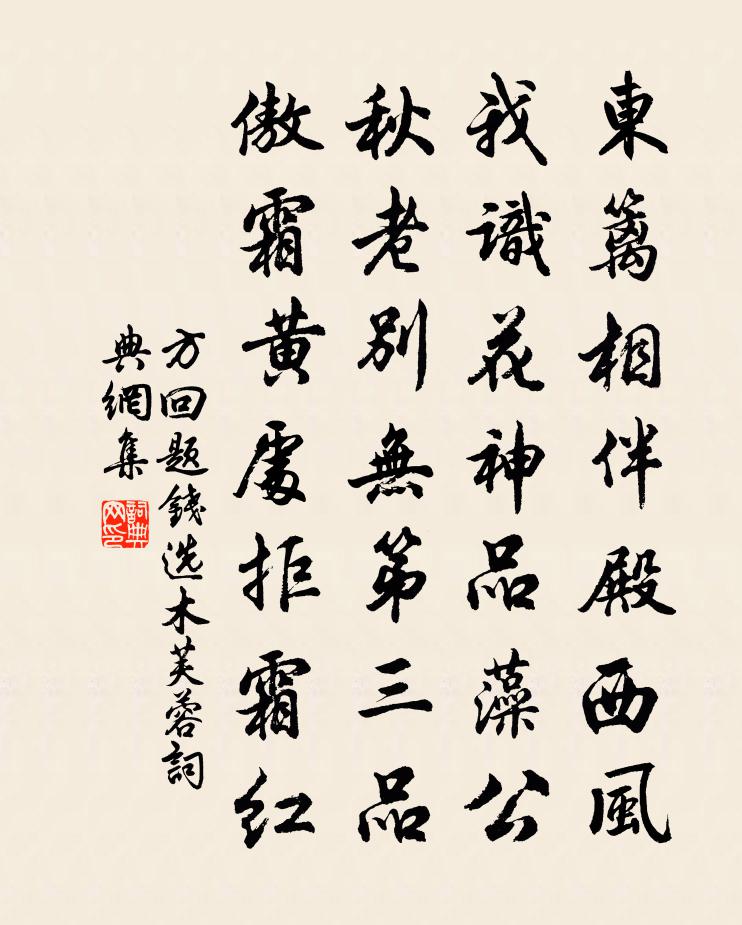 東籬相伴殿西風
我識花神品藻公
秋老別無第三品
傲霜黃處拒霜紅
方回題錢选木芙蓉詞
典網集
詞典网印